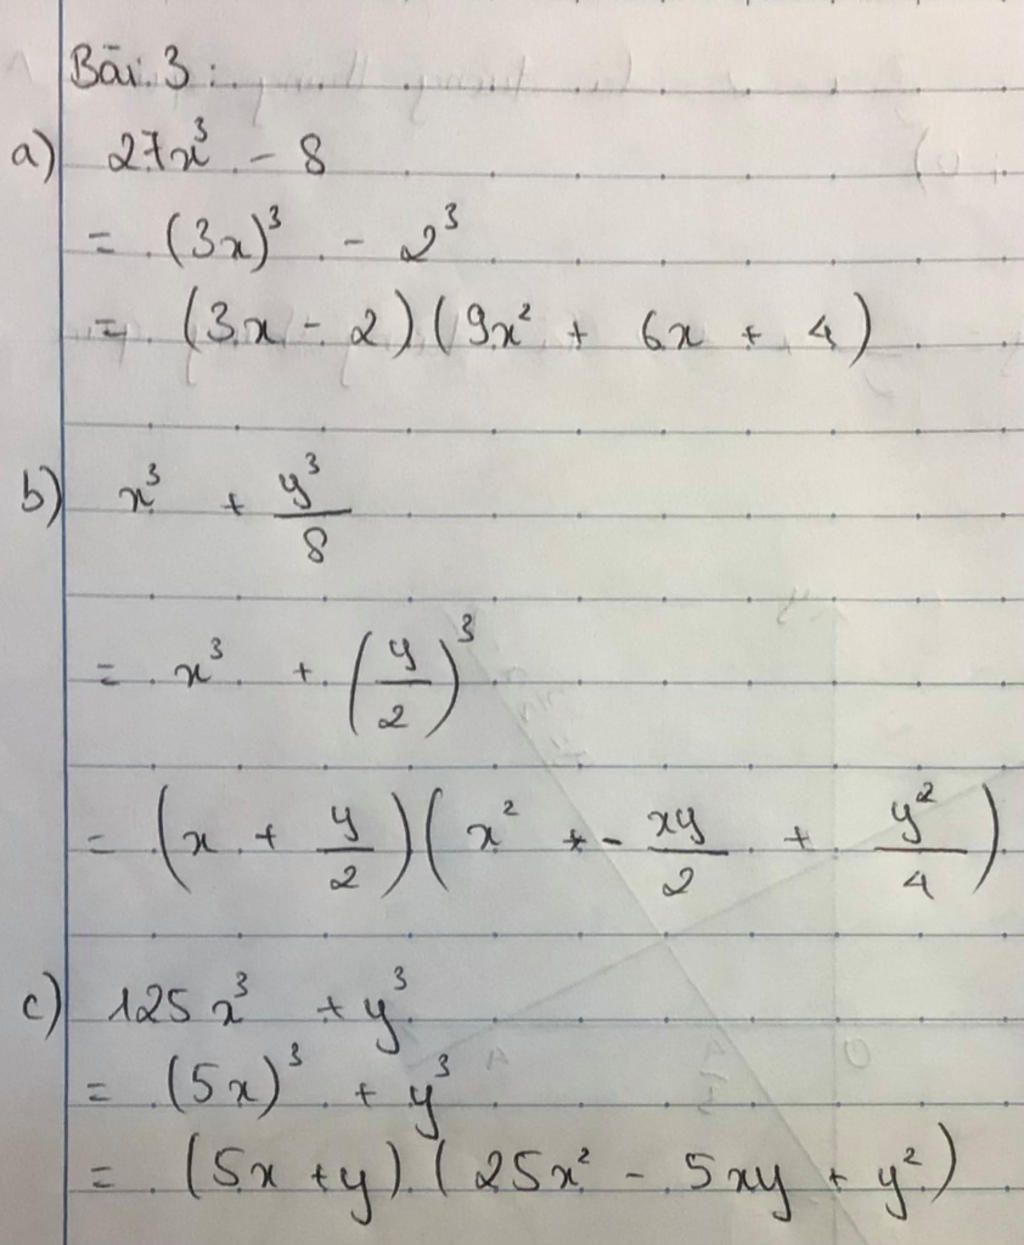 Bài 3 :
a) 27x³ - 8
= (3x)³ - 2³
= (3x - 2)(9x² + 6x + 4)
b) x³ + y³/8
= x³ + (y/2)³
= (x + y/2)(x² - xy/2 + y²/4)
c) 125x³ + y³
= (5x)³ + y³
= (5x + y)(25x² - 5xy + y²)